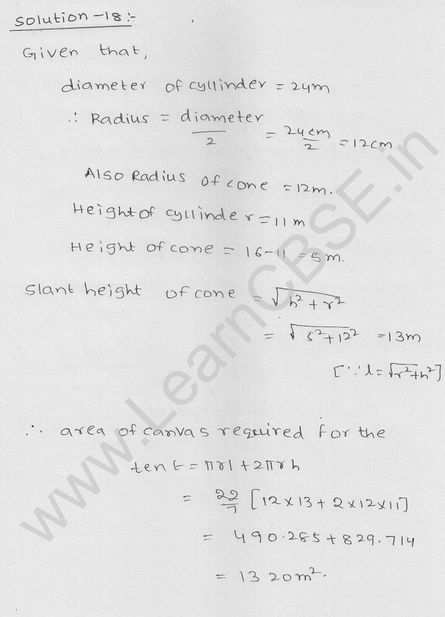 Solution -18:-
Given that,
diameter of cyllinder = 24m
∴ Radius = diameter/2 = 24cm/2 = 12cm
Also Radius of cone = 12m.
Height of cyllinder = 11m
Height of cone = 16-11 = 5m.
Slant height of cone = √h²+r²
= √5²+12² = 13m
[∵ l = √r²+h²]
∴ area of canvas required for the
tent = πrl + 2πrh
= 22/7 [12×13 + 2×12×11]
= 490.285 + 829.714
= 1320m².
www.LearnCBSE.in